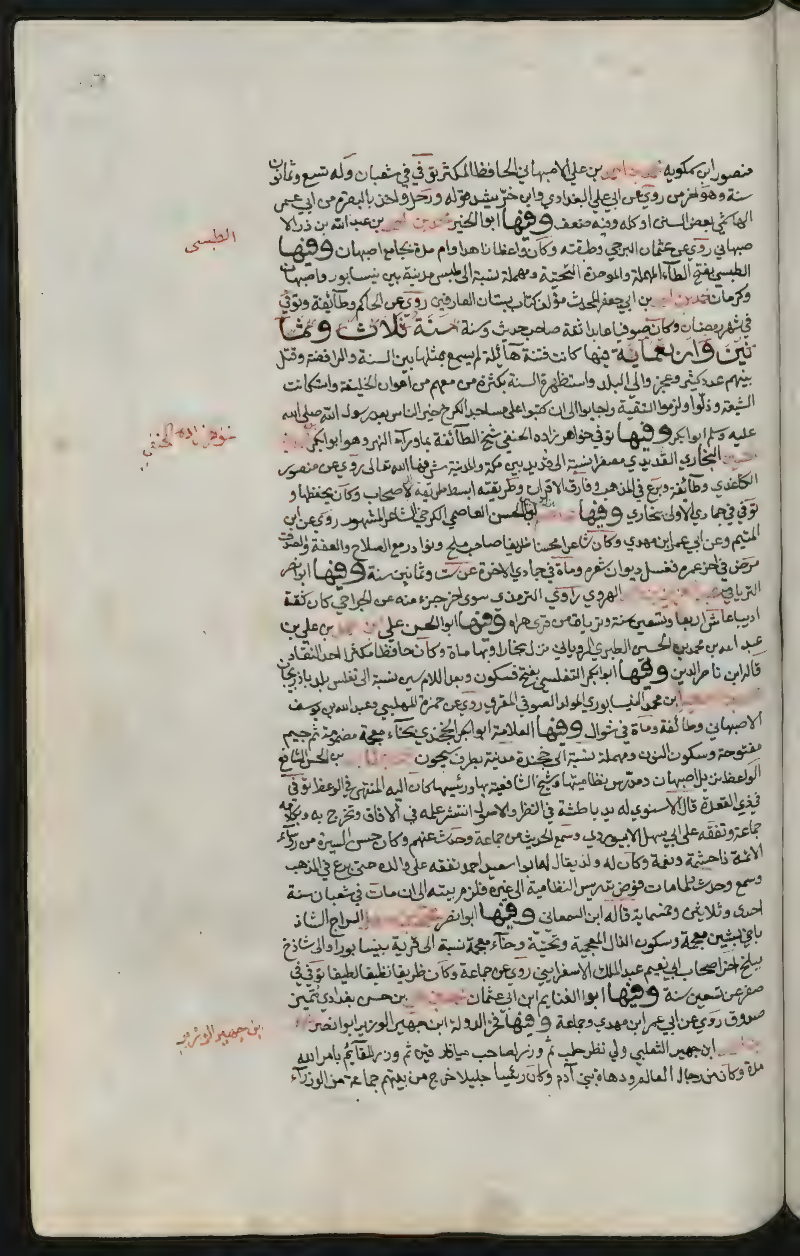 منصور ابن مكويه محمد بن احمد بن علي الاصبهاني الحافظ المكثر توفي في شعبان وله تسع وثمانون
سنة وهو اخر من روى عن ابي علي البغدادي وابن خرشيد قوله ورحل واخذ بالبصرة من ابي عمر
الهاشمي بعض السنن او كله وفيه ضعف وفيها ابو الخير محمد بن احمد بن عبد الله بن ذر الا
صبهاني روى عن عثمان البرجي وطبقته وكان واعظا زاهدا وام مدة بجامع اصبهان وفيها
الطبسي
الطبسي بفتح الطاء المهملة والموحدة التحتية ومهملة نسبة الى طبس مدينة بين نيسابور واصبهان
وكرمان محمد بن احمد بن ابي جعفر المحدث مؤلف كتاب بستان العارفين روى عن الحاكم وطائفة وتوفي
في شهر رمضان وكان صوفيا عابدا ثقة صاحب حديث وسنة سنة ثلاث وثما
نين واربعماية فيها كانت فتنة هائلة لم يسمع بمثلها بين السنة والرافضة وقتل
بينهم عدد كثير وعجز والي البلد واستظهرة السنة بكثرة من معهم من اعوان الخليفة واستكانت
الشيعة وذلوا ولزموا التقية واجابوا الى ان كتبوا على مساجد الكرخ خير الناس بعد رسول الله صلى الله
خواهر زاده الحنفي
عليه وسلم ابو بكر وفيها توفي خواهر زاده الحنفي شيخ الطائفة بما وراء النهر وهو ابو بكر
البخاري القديدي مصغرا نسبة الى قديد بين مكة والمدينة شرفها الله تعالى روى عن منصور
الكاغدي وطائفة وبرع في المذهب وفاق الاقران وطريقته ابسط طريقة الاصحاب وكان يحفظها و
توفي في جمادي الاولى ببخاري وفيها ابو الحسن العاصمي الكرخي الشاعر المشهور روى عن ابن
المتيم وعن ابي عمر ابن مهدي وكان شاعرا محسنا ظريفا صاحب ملح ونوادر مع الصلاح والعفة والصدق
مرض في اخر عمره فغسل ديوان شعره ومات في جمادي الاخرة عن ست وثمانين سنة وفيها ابو نصر
الترياقي الهروي راوي الترمذي سوى اخر جزء منه عن الجراحي كان ثقة
اديبا عاش اربعا وتسعين سنة وترياق من قرى هراه وفيها ابو الحسن علي بن محمد بن علي بن
عبد الله بن محمد بن الحسين الطبري الروياني نزل بخارا وبها مات وكان حافظا مكثرا احد النقاد
قاله ابن ناصر الدين وفيها ابو بكر التفليسي بفتح فسكون وبعد اللام سين نسبة الى تفليس بلد باذربيجان
ابن محمد النيسابوري المولد الصوفي المقري روى عن حمزة المهلبي وعبد الله بن يوسف
الاصبهاني وطائفة ومات في شوال وفيها العلامة ابو بكر الخجندي بخاء معجمة مضمومة ثم جيم
مفتوحة وسكون النون ومهملة نسبة الى خجندة مدينة بطرف سيحون بن الحسن الشافعي
الواعظ نزيل اصبهان ومدرس نظاميتها وشيخ الشافعية بها ورئيسها كان اليه المنتهى في الوعظ توفي
في ذي القعدة قال الاسنوي له يد باطشة في النظر والاصول انتشر علمه في الافاق وتخرج به وبكلامه
جماعة وتفقه على ابي سهل الابيوردي وسمع الحديث من جماعة وحدث عنهم وكان حسن السيرة من رؤساء
الائمة ذا حشمة ونعمة وكان له ولد يقال له ابو سعيد احمد تفقه على والده حتى برع في المذهب
وسمع وحدث فلما مات فوض تدريس النظامية الى غيره فلزم بيته الى ان مات في شعبان سنة
احدى وثلاثين وخمسماية قاله ابن السمعاني وفيها ابو نصر محمد بن سهل السراج الشاذ
ياخي بشين معجمة وسكون الذال المعجمة وتحتية وخاء معجمة نسبة الى قرية بنيسابور والى شاذخ
ببلخ اخر اصحاب ابي نعيم عبد الملك الاسفرايني روى عن جماعة وكان ظريفا نظيفا لطيفا توفي في
صفر عن تسعين سنة وفيها ابو الغنايم ابن ابي عثمان بن حسن بغدادي متميز
ابن جهير الوزير
صدوق روى عن ابي عمر ابن مهدي وجماعة وفيها فخر الدولة ابن جهير الوزير ابو نصر
ابن جهير الثعلبي ولي نظر حلب ثم وزر لصاحب ميافارقين ثم وزر للقايم بامر الله
مدة وكان من رجال العالم ودهاة بني آدم وكان رئيسا جليلا خرج من بيتهم جماعة من الوزراء